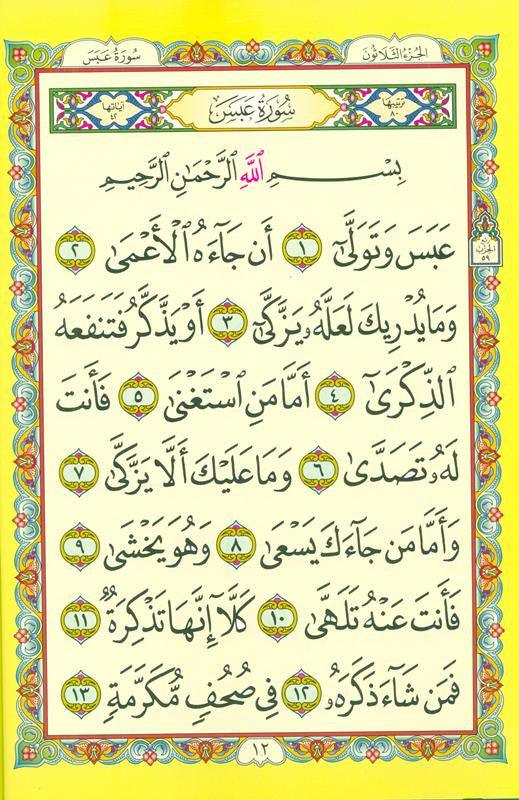 الجُزءُ الثَّلَاثُونَ
سُورَةُ عَبَسَ
تَرتِيبُهَا ٨٠
سُورَةُ عَبَسَ
آيَاتُهَا ٤٢
بِسْمِ ٱللَّهِ ٱلرَّحْمَٰنِ ٱلرَّحِيمِ
عَبَسَ وَتَوَلَّىٰٓ ١ أَن جَآءَهُ ٱلْأَعْمَىٰ ٢
رُبع الحِزب ٥٩
وَمَا يُدْرِيكَ لَعَلَّهُۥ يَزَّكَّىٰٓ ٣ أَوْ يَذَّكَّرُ فَتَنفَعَهُ
ٱلذِّكْرَىٰٓ ٤ أَمَّا مَنِ ٱسْتَغْنَىٰ ٥ فَأَنتَ
لَهُۥ تَصَدَّىٰ ٦ وَمَا عَلَيْكَ أَلَّا يَزَّكَّىٰ ٧
وَأَمَّا مَن جَآءَكَ يَسْعَىٰ ٨ وَهُوَ يَخْشَىٰ ٩
فَأَنتَ عَنْهُ تَلَهَّىٰ ١٠ كَلَّآ إِنَّهَا تَذْكِرَةٌ ١١
فَمَن شَآءَ ذَكَرَهُۥ ١٢ فِى صُحُفٍ مُّكَرَّمَةٍ ١٣
١٢